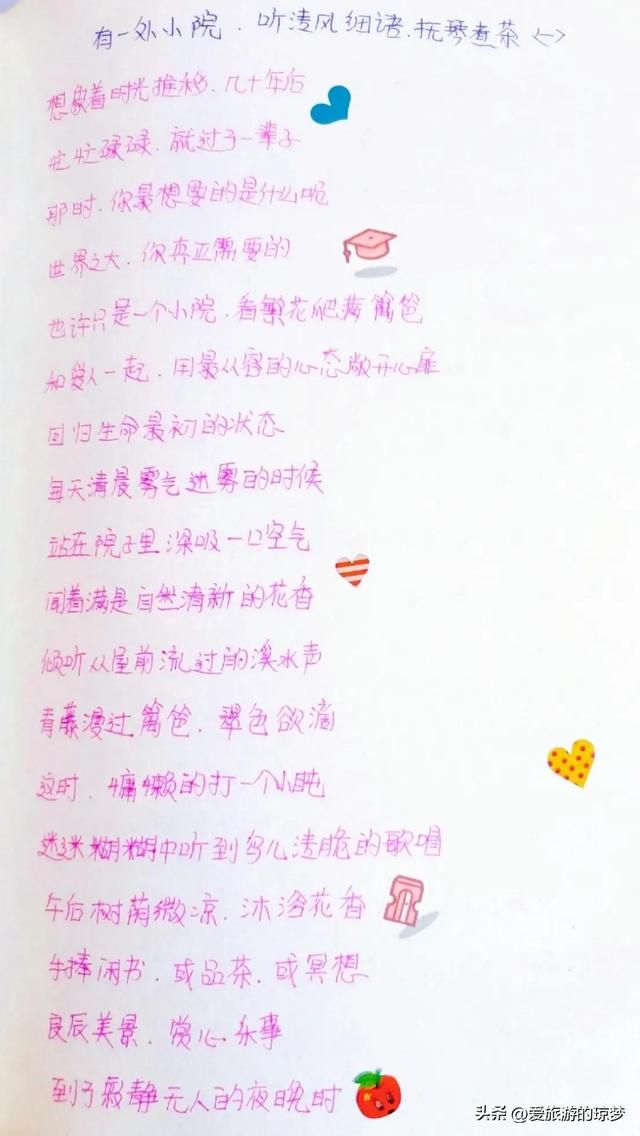 有一处小院.听清风细诸.抚琴煮茶<一>
想象着时光推移.几十年后
忙忙碌碌.就过了一辈子
那时.你最想要的是什么呢
世界之大.你真正需要的
也许只是一个小院.看繁花爬满篱笆
和爱人一起.用最从容的心态敞开心扉
回归生命最初的状态
每天清晨雾气迷雾的时候
站在院子里深吸一口空气
闻着满是自然清新的花香
倾听从屋前流过的溪水声
青藤漫过篱笆.翠色欲滴
这时.慵懒的打一个小盹
迷迷糊糊中听到鸟儿清脆的歌唱
午后树荫微凉.沐浴花香
手捧闲书.或品茶.或冥想
良辰美景.赏心乐事
到了寂静无人的夜晚时
头条 @爱旅游的琼梦